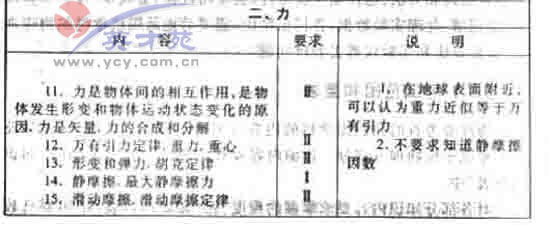 二、力
内 容
要求
说 明
11. 力是物体间的相互作用,是物
体发生形变和物体运动状态变化的原
因.力是矢量.力的合成和分解
Ⅱ
12. 万有引力定律.重力.重心
Ⅱ
13. 形变和弹力.胡克定律
Ⅱ
14. 静摩擦.最大静摩擦力
Ⅰ
15. 滑动摩擦.滑动摩擦定律
Ⅱ
1. 在地球表面附近,
可以认为重力近似等于万
有引力
2. 不要求知道静摩擦
因数
英才苑
www.ycy.com.cn